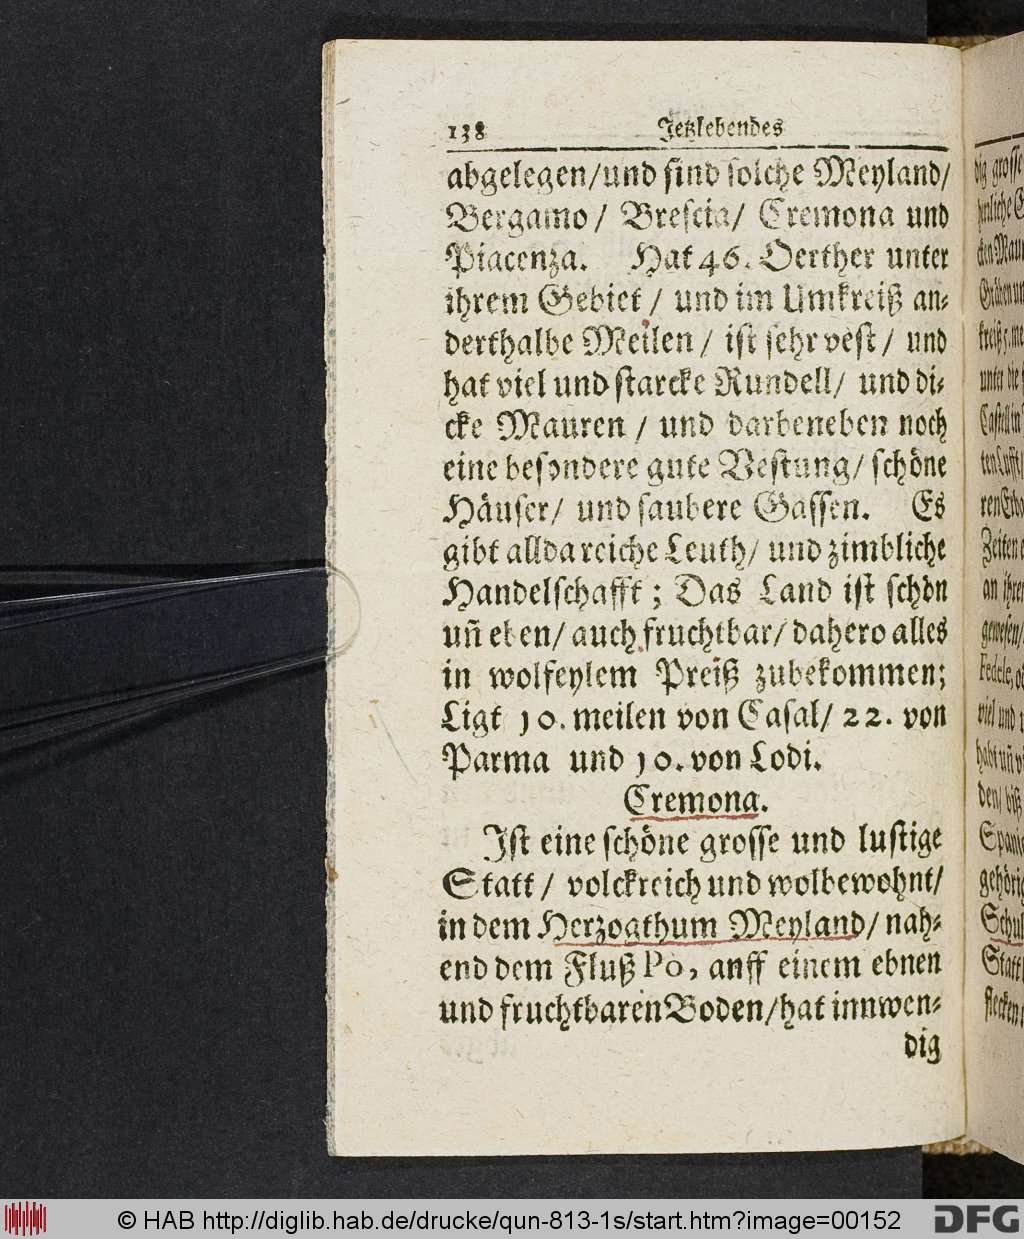 138 Jetzlebendes
abgelegen/und sind solche Meyland/
Bergamo/ Brescia/ Cremona und
Piacenza. Hat 46. Oerther unter
ihrem Gebiet / und im Umkreiß an-
derthalbe Meilen / ist sehr vest / und
hat viel und starcke Rundell/ und di-
cke Mauren / und darbeneben noch
eine besondere gute Vestung/ schöne
Häuser/ und saubere Gassen. Es
gibt allda reiche Leuth/ und zimbliche
Handelschafft ; Das Land ist schön
uñ eben/ auch fruchtbar/ dahero alles
in wolfeylem Preiß zubekommen;
Ligt 10. meilen von Casal/ 22. von
Parma und 10. von Lodi.
Cremona.
Ist eine schöne grosse und lustige
Statt / volckreich und wolbewohnt/
in dem Herzogthum Meyland/ nah-
end dem Fluß Pò, anff einem ebnen
und fruchtbaren Boden/hat innwen-
dig
dig grosse
den Maur
Gräben un
unter die
Zeiten
an ihre
gewesen/
viel und
den/ biß
Spani
gehörig
Schul
Statt
flecken
© HAB http://diglib.hab.de/drucke/qun-813-1s/start.htm?image=00152
DFG